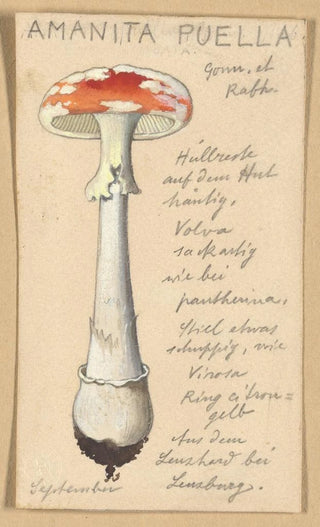 AMANITA PUELLA
Gonn. et
Rabh.
Hüllreste
auf dem Hut
häutig.
Volva
sackartig
wie bei
pantherina.
Stiel etwas
schuppig, wie
Virosa
Ring citron=
gelb
Aus dem
Lenzhard bei
Lenzburg.
September